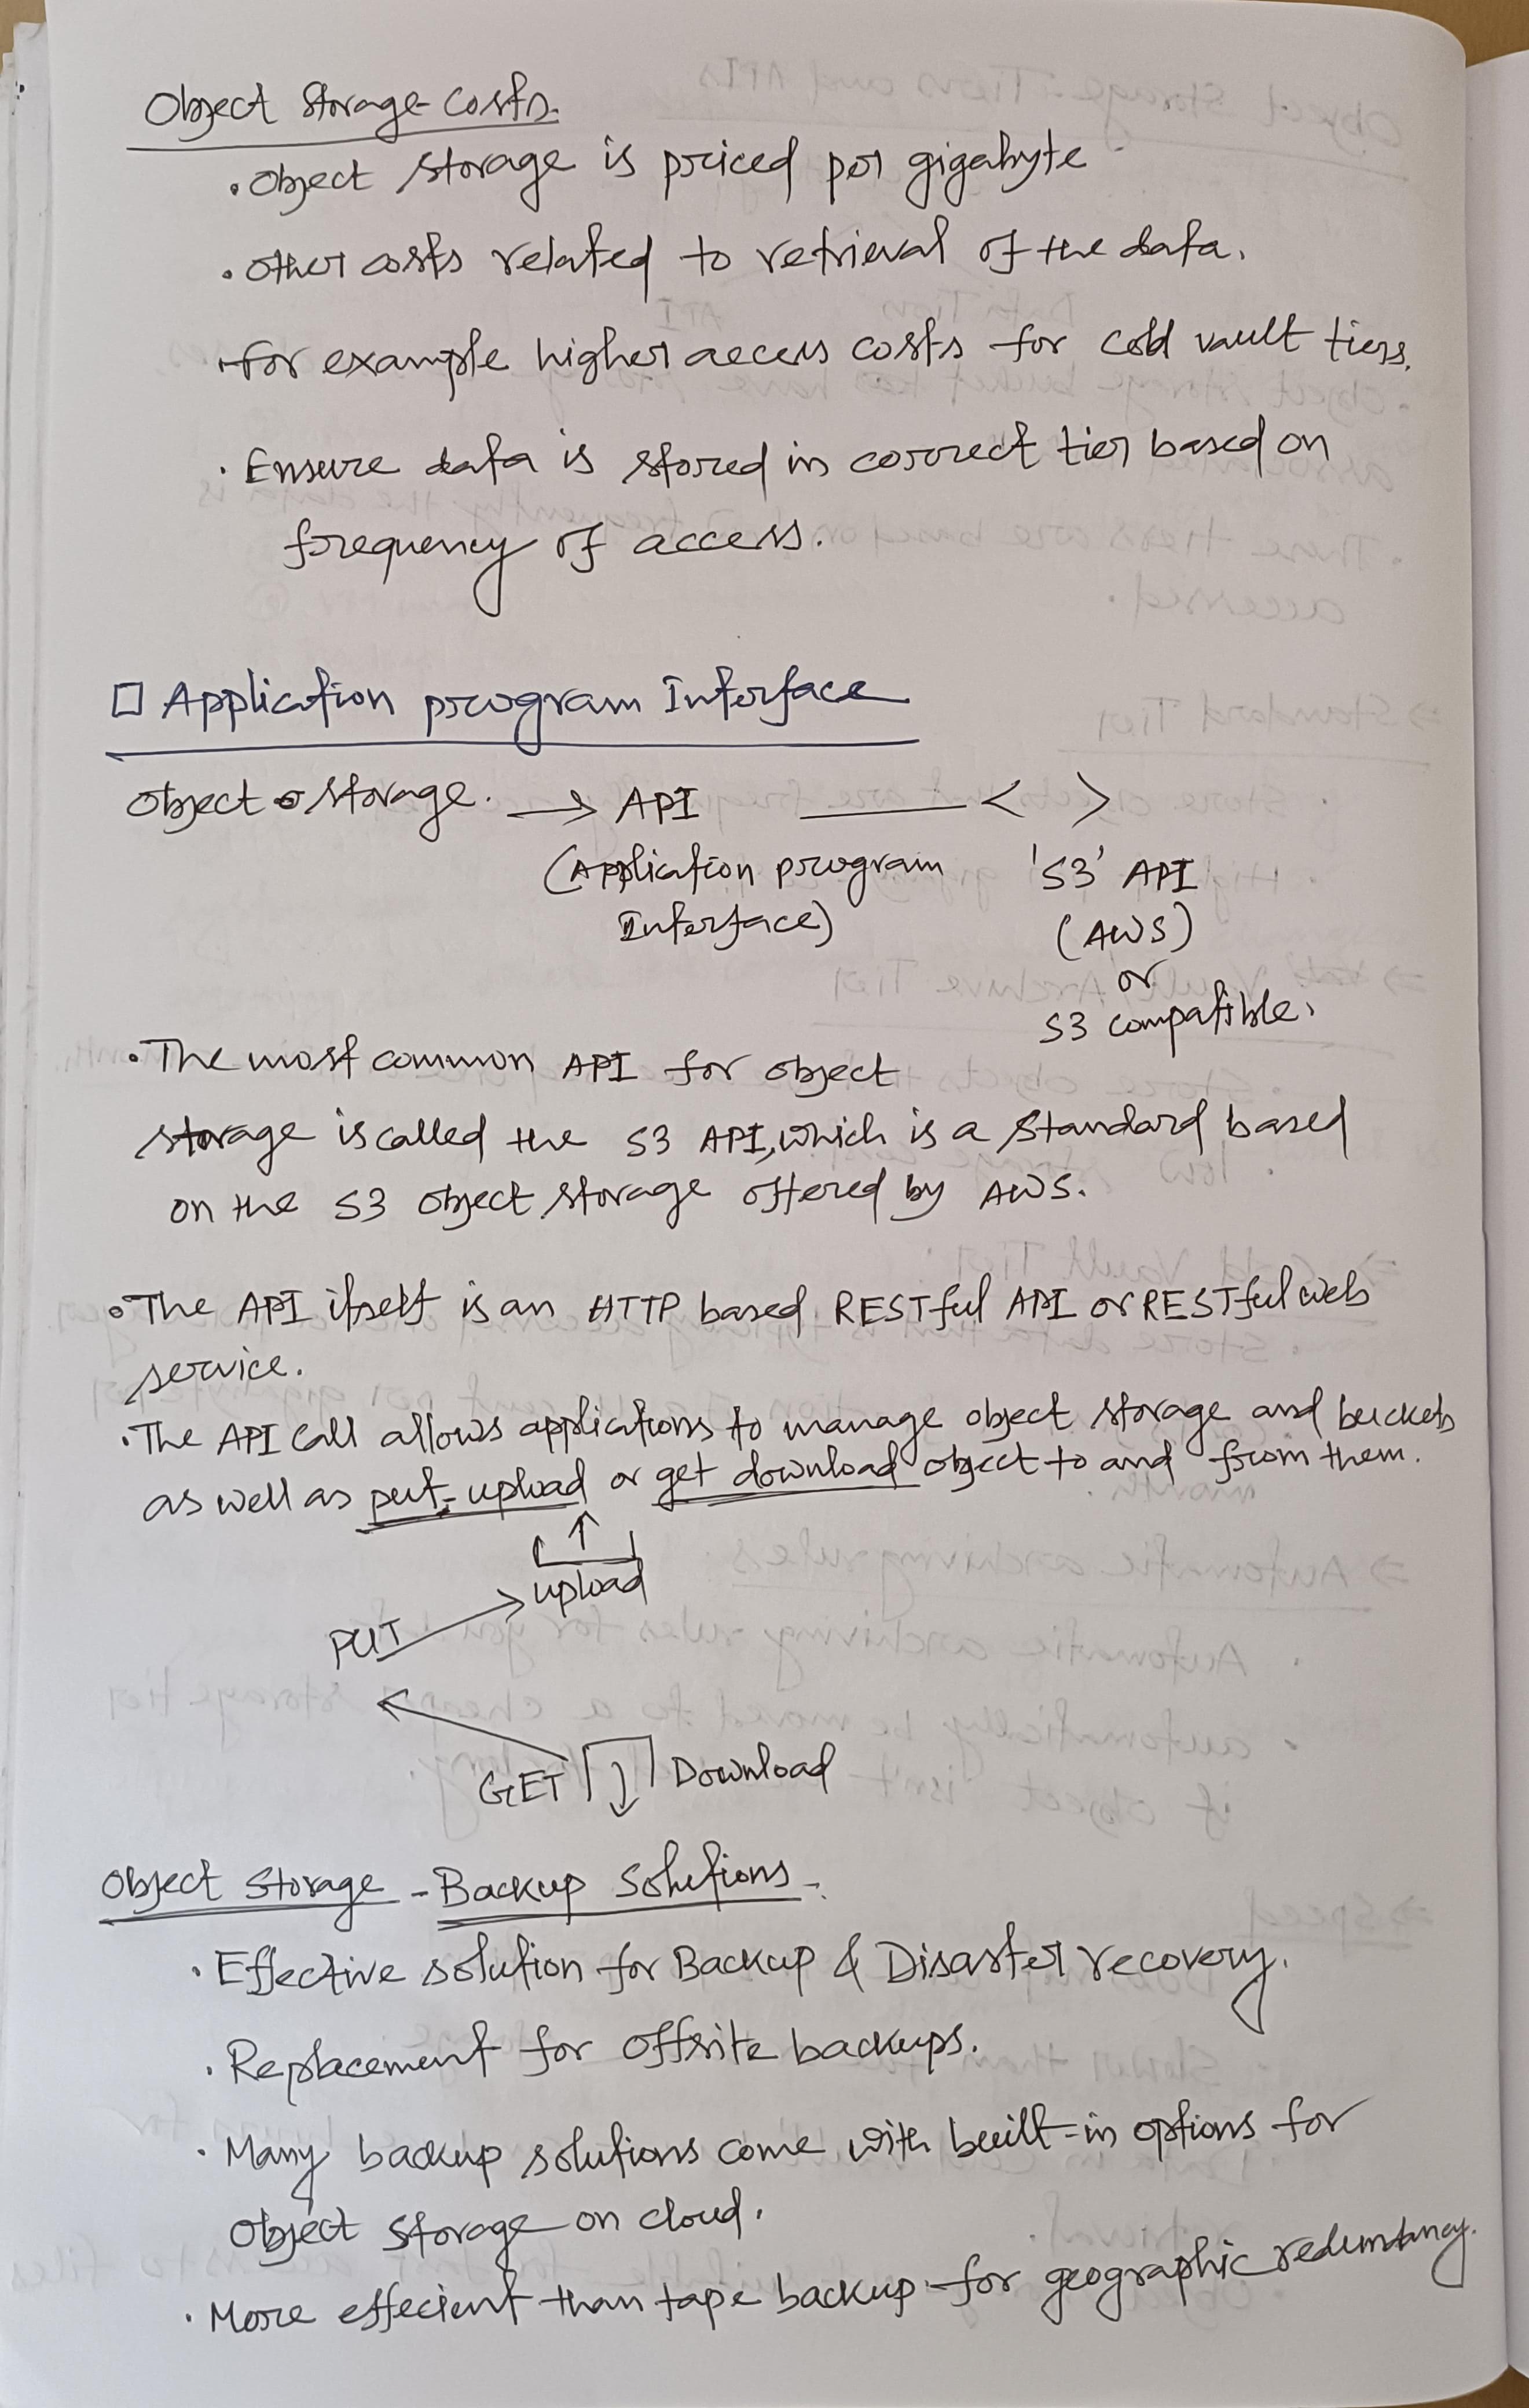 Object Storage Costs.
• Object storage is priced per gigabyte
• Other costs related to retrieval of the data.
• for example higher access costs for cold vault tiers.
• Ensure data is stored in correct tier based on
frequency of access.
□ Application program Interface
Object storage. → API —— < >
(Application program 'S3' API
Interface) (AWS)
or
S3 compatible.
• The most common API for object
storage is called the S3 API, which is a standard based
on the S3 object storage offered by AWS.
• The API itself is an HTTP based RESTful API or RESTful web
service.
• The API call allows applications to manage object storage and buckets
as well as put-upload or get download object to and from them.
↑
upload
PUT
GET ↓ Download
Object Storage - Backup Solutions -
• Effective solution for Backup & Disaster recovery.
• Replacement for offsite backups.
• Many backup solutions come with built-in options for
Object Storage on cloud.
• More effecient than tape backup for geographic redundancy.